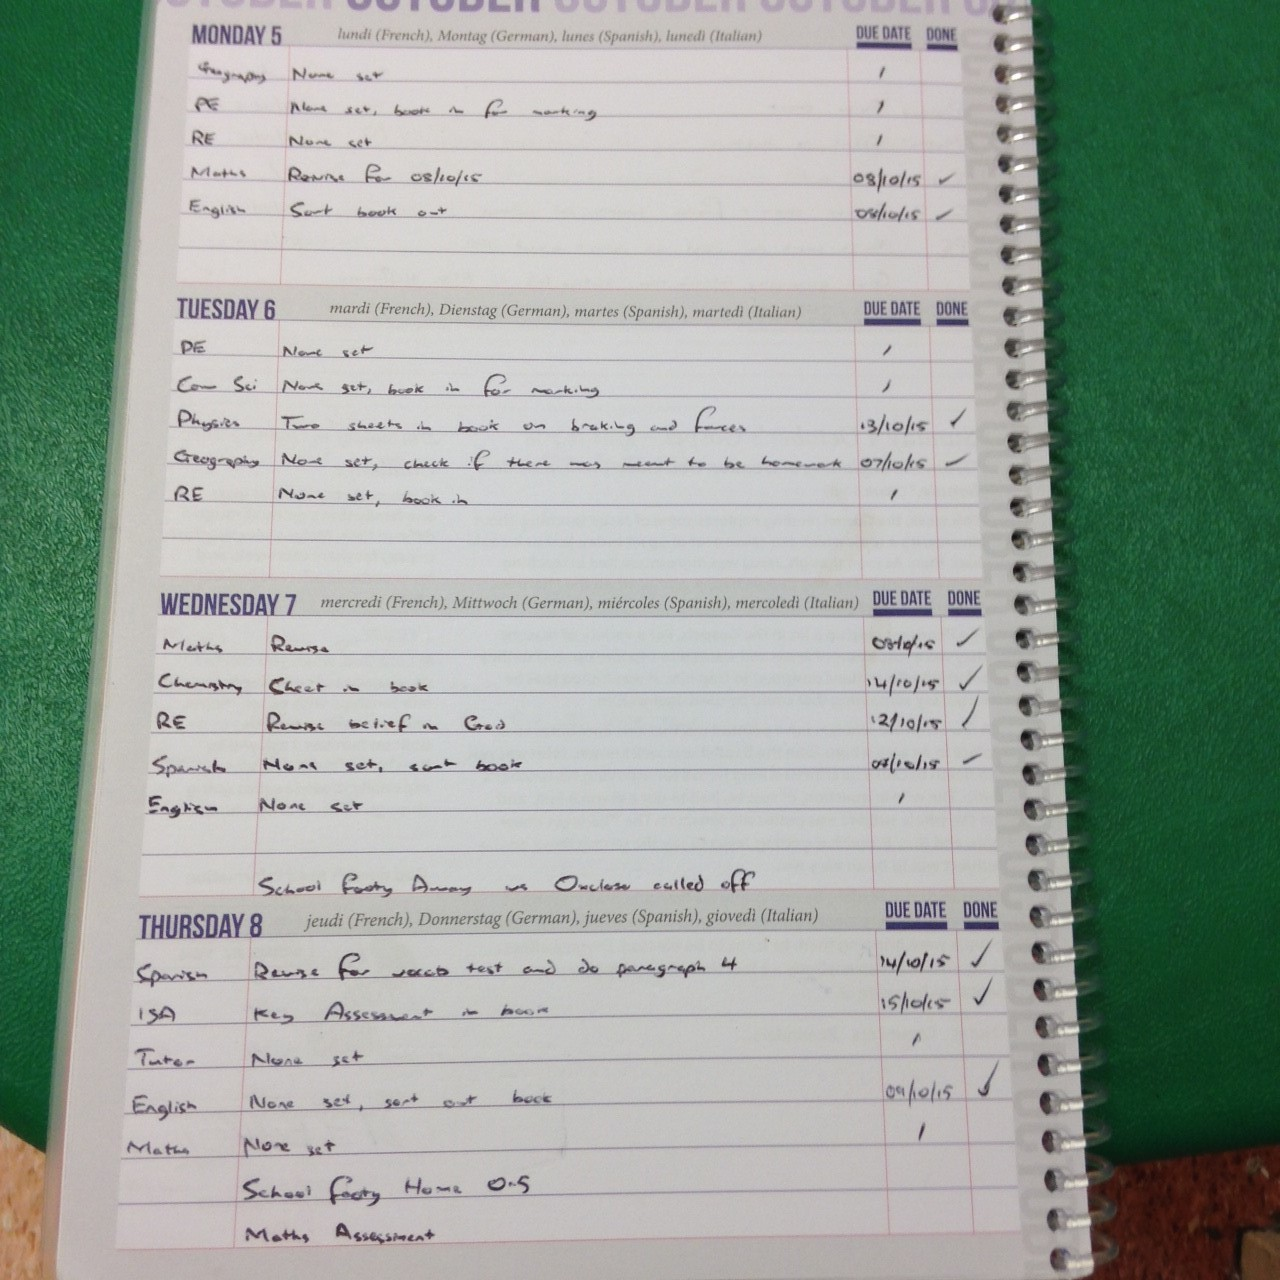 OCTOBER OCTOBER OCTOBER OCTOBER
MONDAY 5 lundi (French), Montag (German), lunes (Spanish), lunedì (Italian) DUE DATE DONE
Geography None set /
PE None set, book in for marking /
RE None set /
Maths Revise for 08/10/15 08/10/15 ✓
English Sort book out 08/10/15 ✓
TUESDAY 6 mardi (French), Dienstag (German), martes (Spanish), martedì (Italian) DUE DATE DONE
PE None set /
Com Sci None set, book in for marking /
Physics Two sheets in book on braking and forces 13/10/15 ✓
Geography None set, check if there was meant to be homework 07/10/15 ✓
RE None set, book in /
WEDNESDAY 7 mercredi (French), Mittwoch (German), miércoles (Spanish), mercoledì (Italian) DUE DATE DONE
Maths Revise 08/10/15 ✓
Chemistry Sheet in book 14/10/15 ✓
RE Revise belief in God 12/10/15 ✓
Spanish None set, sort book 08/10/15 ✓
English None set /
School footy Away vs Oxclose called off
THURSDAY 8 jeudi (French), Donnerstag (German), jueves (Spanish), giovedì (Italian) DUE DATE DONE
Spanish Revise for vocab test and do paragraph 4 14/10/15 ✓
ISA Key Assessment in book 15/10/15 ✓
Tutor None set /
English None set, sort out book 09/10/15 ✓
Maths None set /
School footy Home 0-5
Maths Assessment